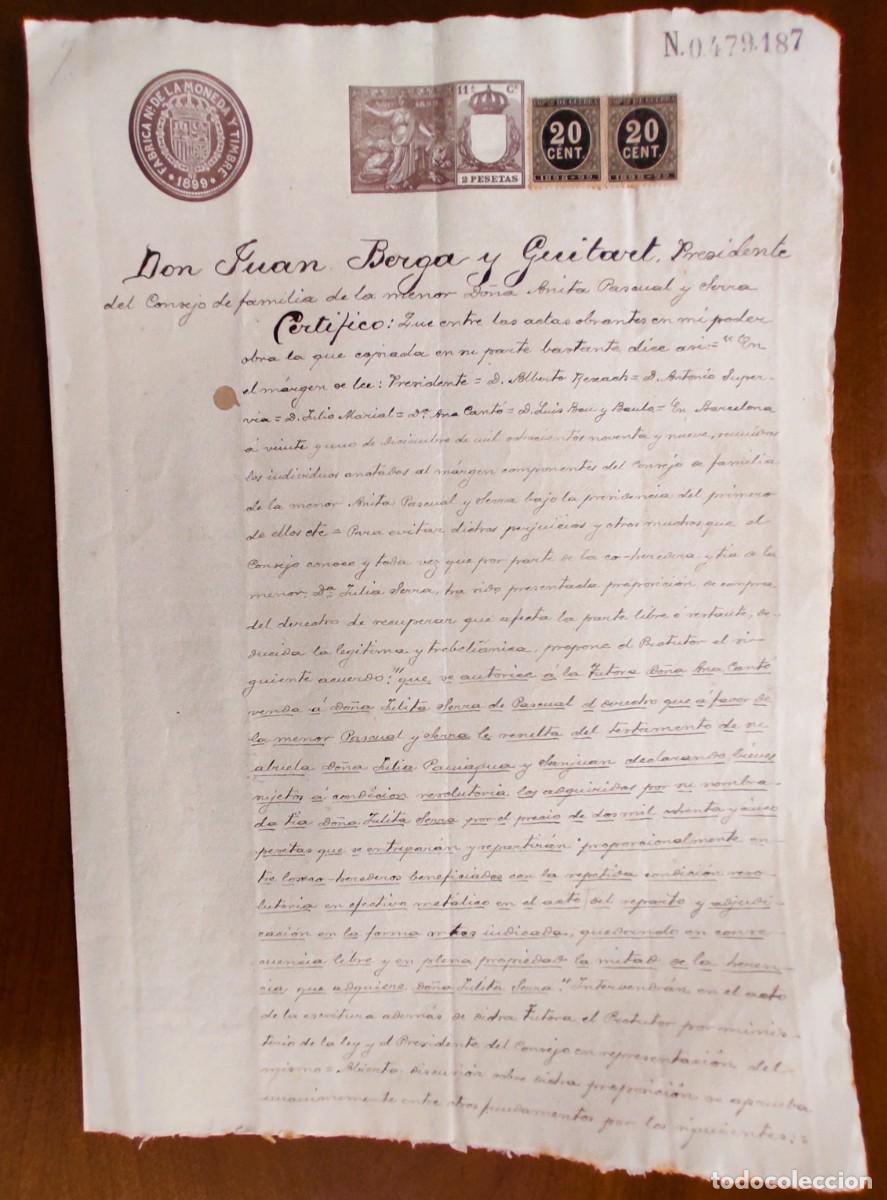 N. 0.479.187
FABRICA Nl. DE LA MONEDA Y TIMBRE
1899
11ª Cª
2 PESETAS
IMPTO DE GUERRA
20
CENT.
1898-99
IMPTO DE GUERRA
20
CENT.
1898-99
Don Juan Berga y Guitart, Presidente
del Consejo de familia de la menor Doña Anita Pascual y Serra
Certifico: Que entre las actas obrantes en mi poder
obra la que copiada en su parte bastante dice asi = "En
el márgen se lee: Presidente = D. Alberto Rexach = D. Antonio Super-
via = D. Julio Marial = Dª Ana Cantó = D. Luis Bau y = En Barcelona
á veinte y uno de diciembre de mil ochocientos noventa y nueve, reunidos
los individuos anotados al márgen componentes del Consejo de familia
de la menor Anita Pascual y Serra bajo la presidencia del primero
de ellos etc = Para evitar dichos perjuicios y otros muchos que el
Consejo conoce y toda vez que por parte de la co-heredera y tia de la
menor, Dª Julia Serra, ha sido presentada proposición de compra
del derecho de recuperar que afecta la parte libre ó restante, de-
ducida la legitima y trebeliánica, propone el Protutor el si-
guiente acuerdo: "que se autorice á la Tutora Doña Ana Cantó
venda á Doña Julita Serra de Pascual el derecho que á favor de
la menor Pascual y Serra le resulta del testamento de su
abuela Doña Julia y Sanjuan declarando bienes
sujetos á condición resolutoria los adquiridos por su nombra-
da tia Doña Julita Serra por el precio de dos mil ochenta y cinco
pesetas que se entregarán y repartirán proporcionalmente en-
tre los co-herederos beneficiados con la repetida condición reso-
lutoria en efectivo metálico en el acto del reparto y adjudi-
cación en la forma indicada, quedando en conse-
cuencia libre y en plena propiedad la mitad de la heren-
cia que adquiere Doña Julita Serra." Intervendrán en el acto
de la escritura además de dicha Tutora el Protutor por minis-
terio de la ley y el Presidente del Consejo en representación del
mismo = Abierta discusión sobre dicha proposición se aprueba
unánimemente entre otros fundamentos por los siguientes: =
todocoleccion